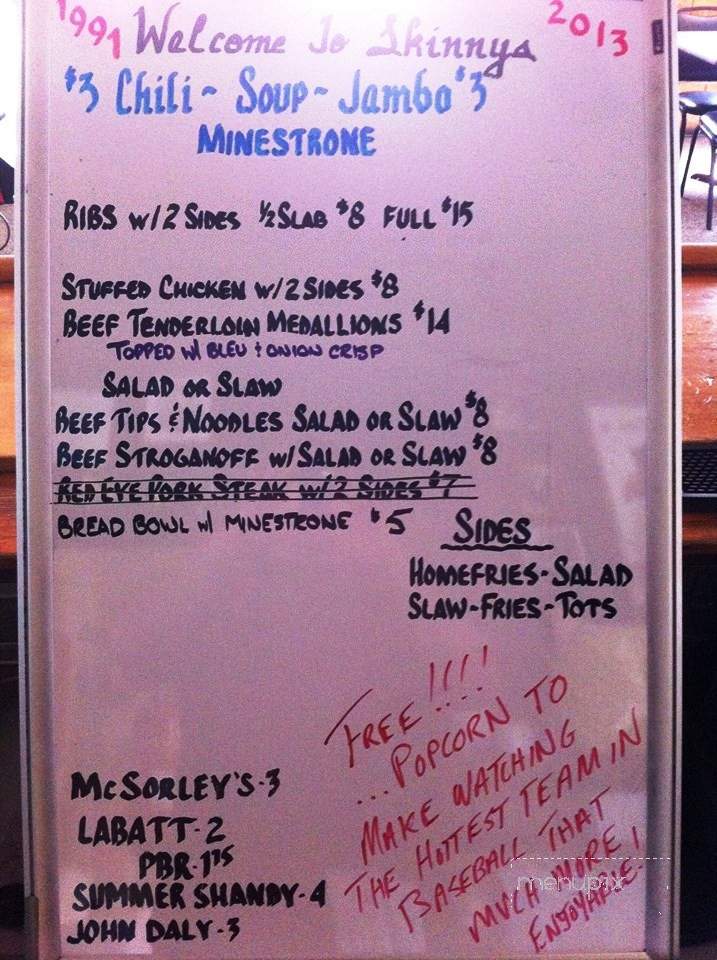 1991 Welcome To Skinnys 2013
$3 Chili - Soup - Jambo $3
MINESTRONE
RIBS W/ 2 SIDES ½ SLAB $8 FULL $15
STUFFED CHICKEN W/ 2 SIDES $8
BEEF TENDERLOIN MEDALLIONS $14
TOPPED W/ BLEU + ONION CRISP
SALAD OR SLAW
BEEF TIPS & NOODLES SALAD OR SLAW $8
BEEF STROGANOFF W/ SALAD OR SLAW $8
RED EYE PORK STEAK W/ 2 SIDES $7
BREAD BOWL W/ MINESTRONE $5
SIDES
HOMEFRIES - SALAD
SLAW - FRIES - TOTS
FREE!!!!
...POPCORN TO
MAKE WATCHING
THE HOTTEST TEAM IN
BASEBALL THAT
MUCH MORE
ENJOYABLE.
McSORLEY'S - 3
LABATT - 2
PBR - 1.75
SUMMER SHANDY - 4
JOHN DALY - 3
menupix